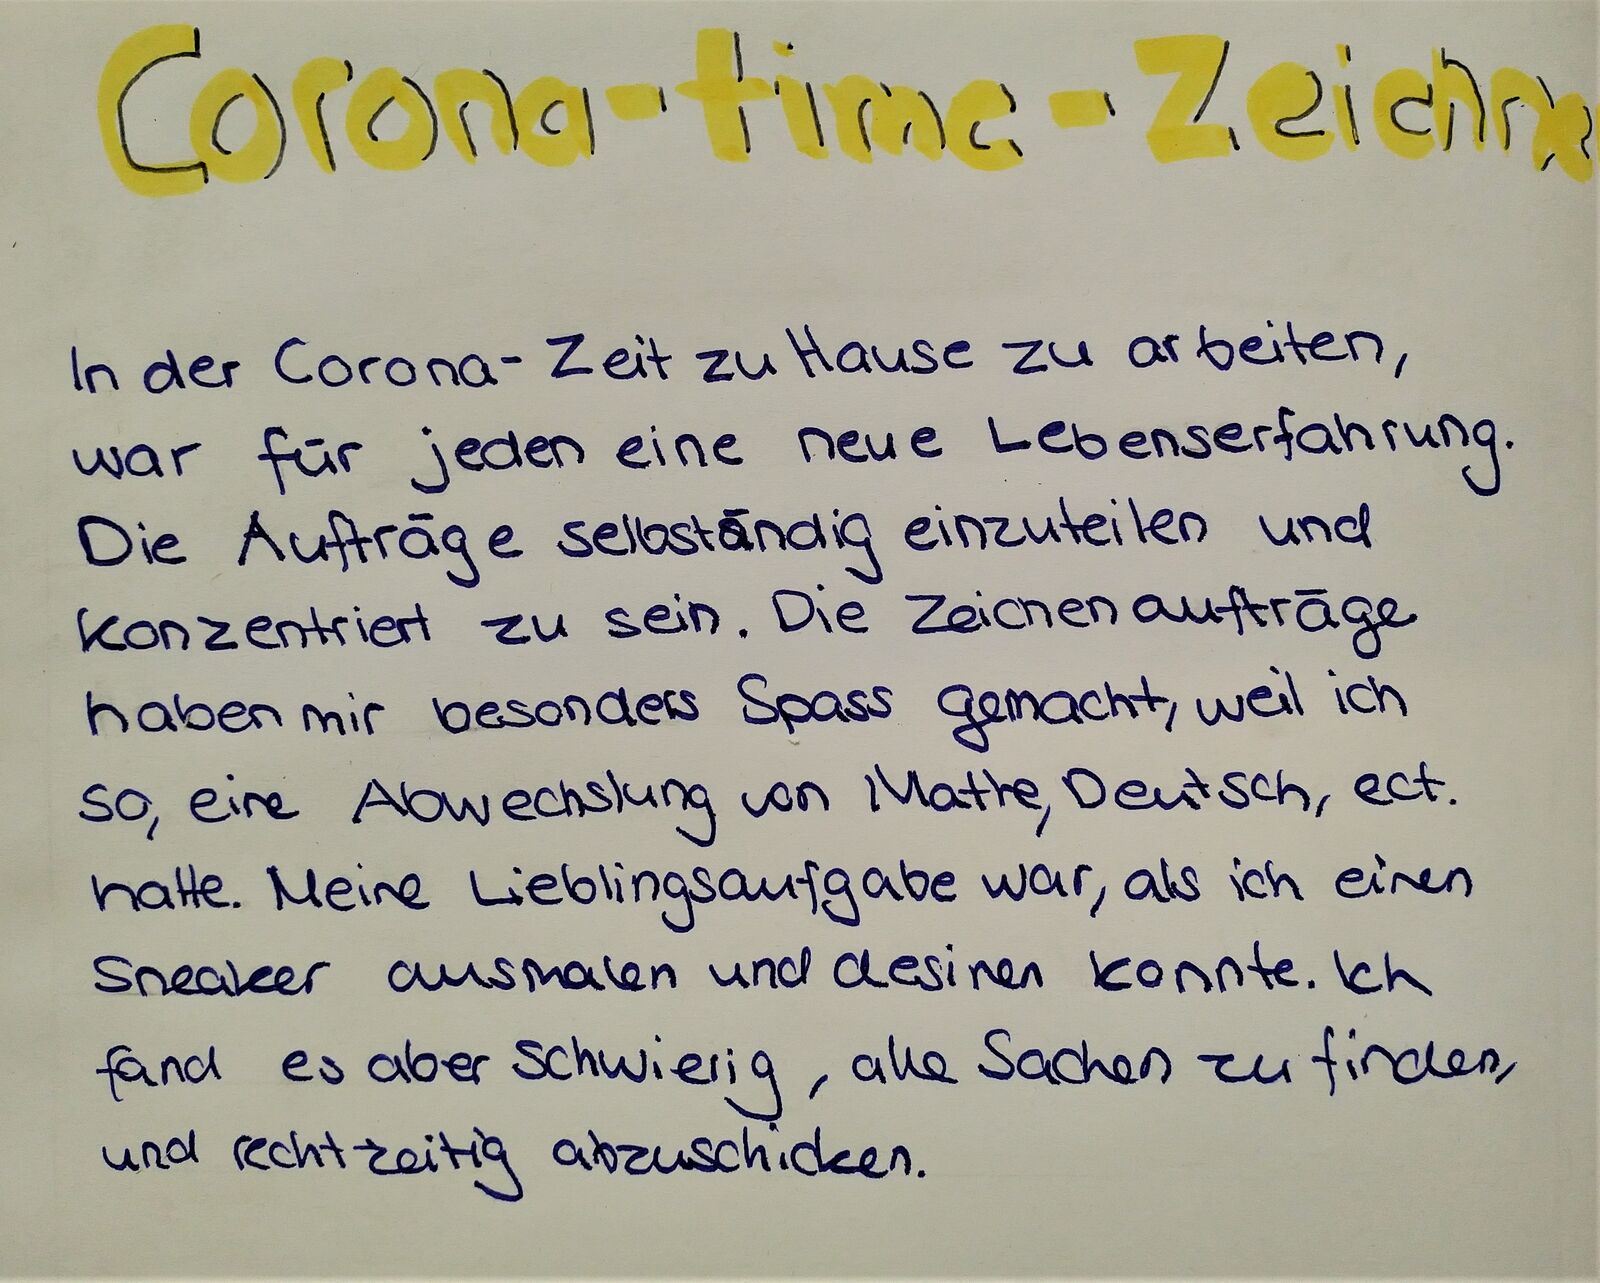 Corona-time-Zeichn
In der Corona-Zeit zu Hause zu arbeiten,
war für jeden eine neue Lebenserfahrung.
Die Aufträge selbständig einzuteilen und
konzentriert zu sein. Die Zeichenaufträge
haben mir besonders Spass gemacht, weil ich
so, eine Abwechslung von Mathe, Deutsch, ect.
hatte. Meine Lieblingsaufgabe war, als ich einen
Sneaker ausmalen und desinen konnte. Ich
fand es aber schwierig, alle Sachen zu finden,
und rechtzeitig abzuschicken.